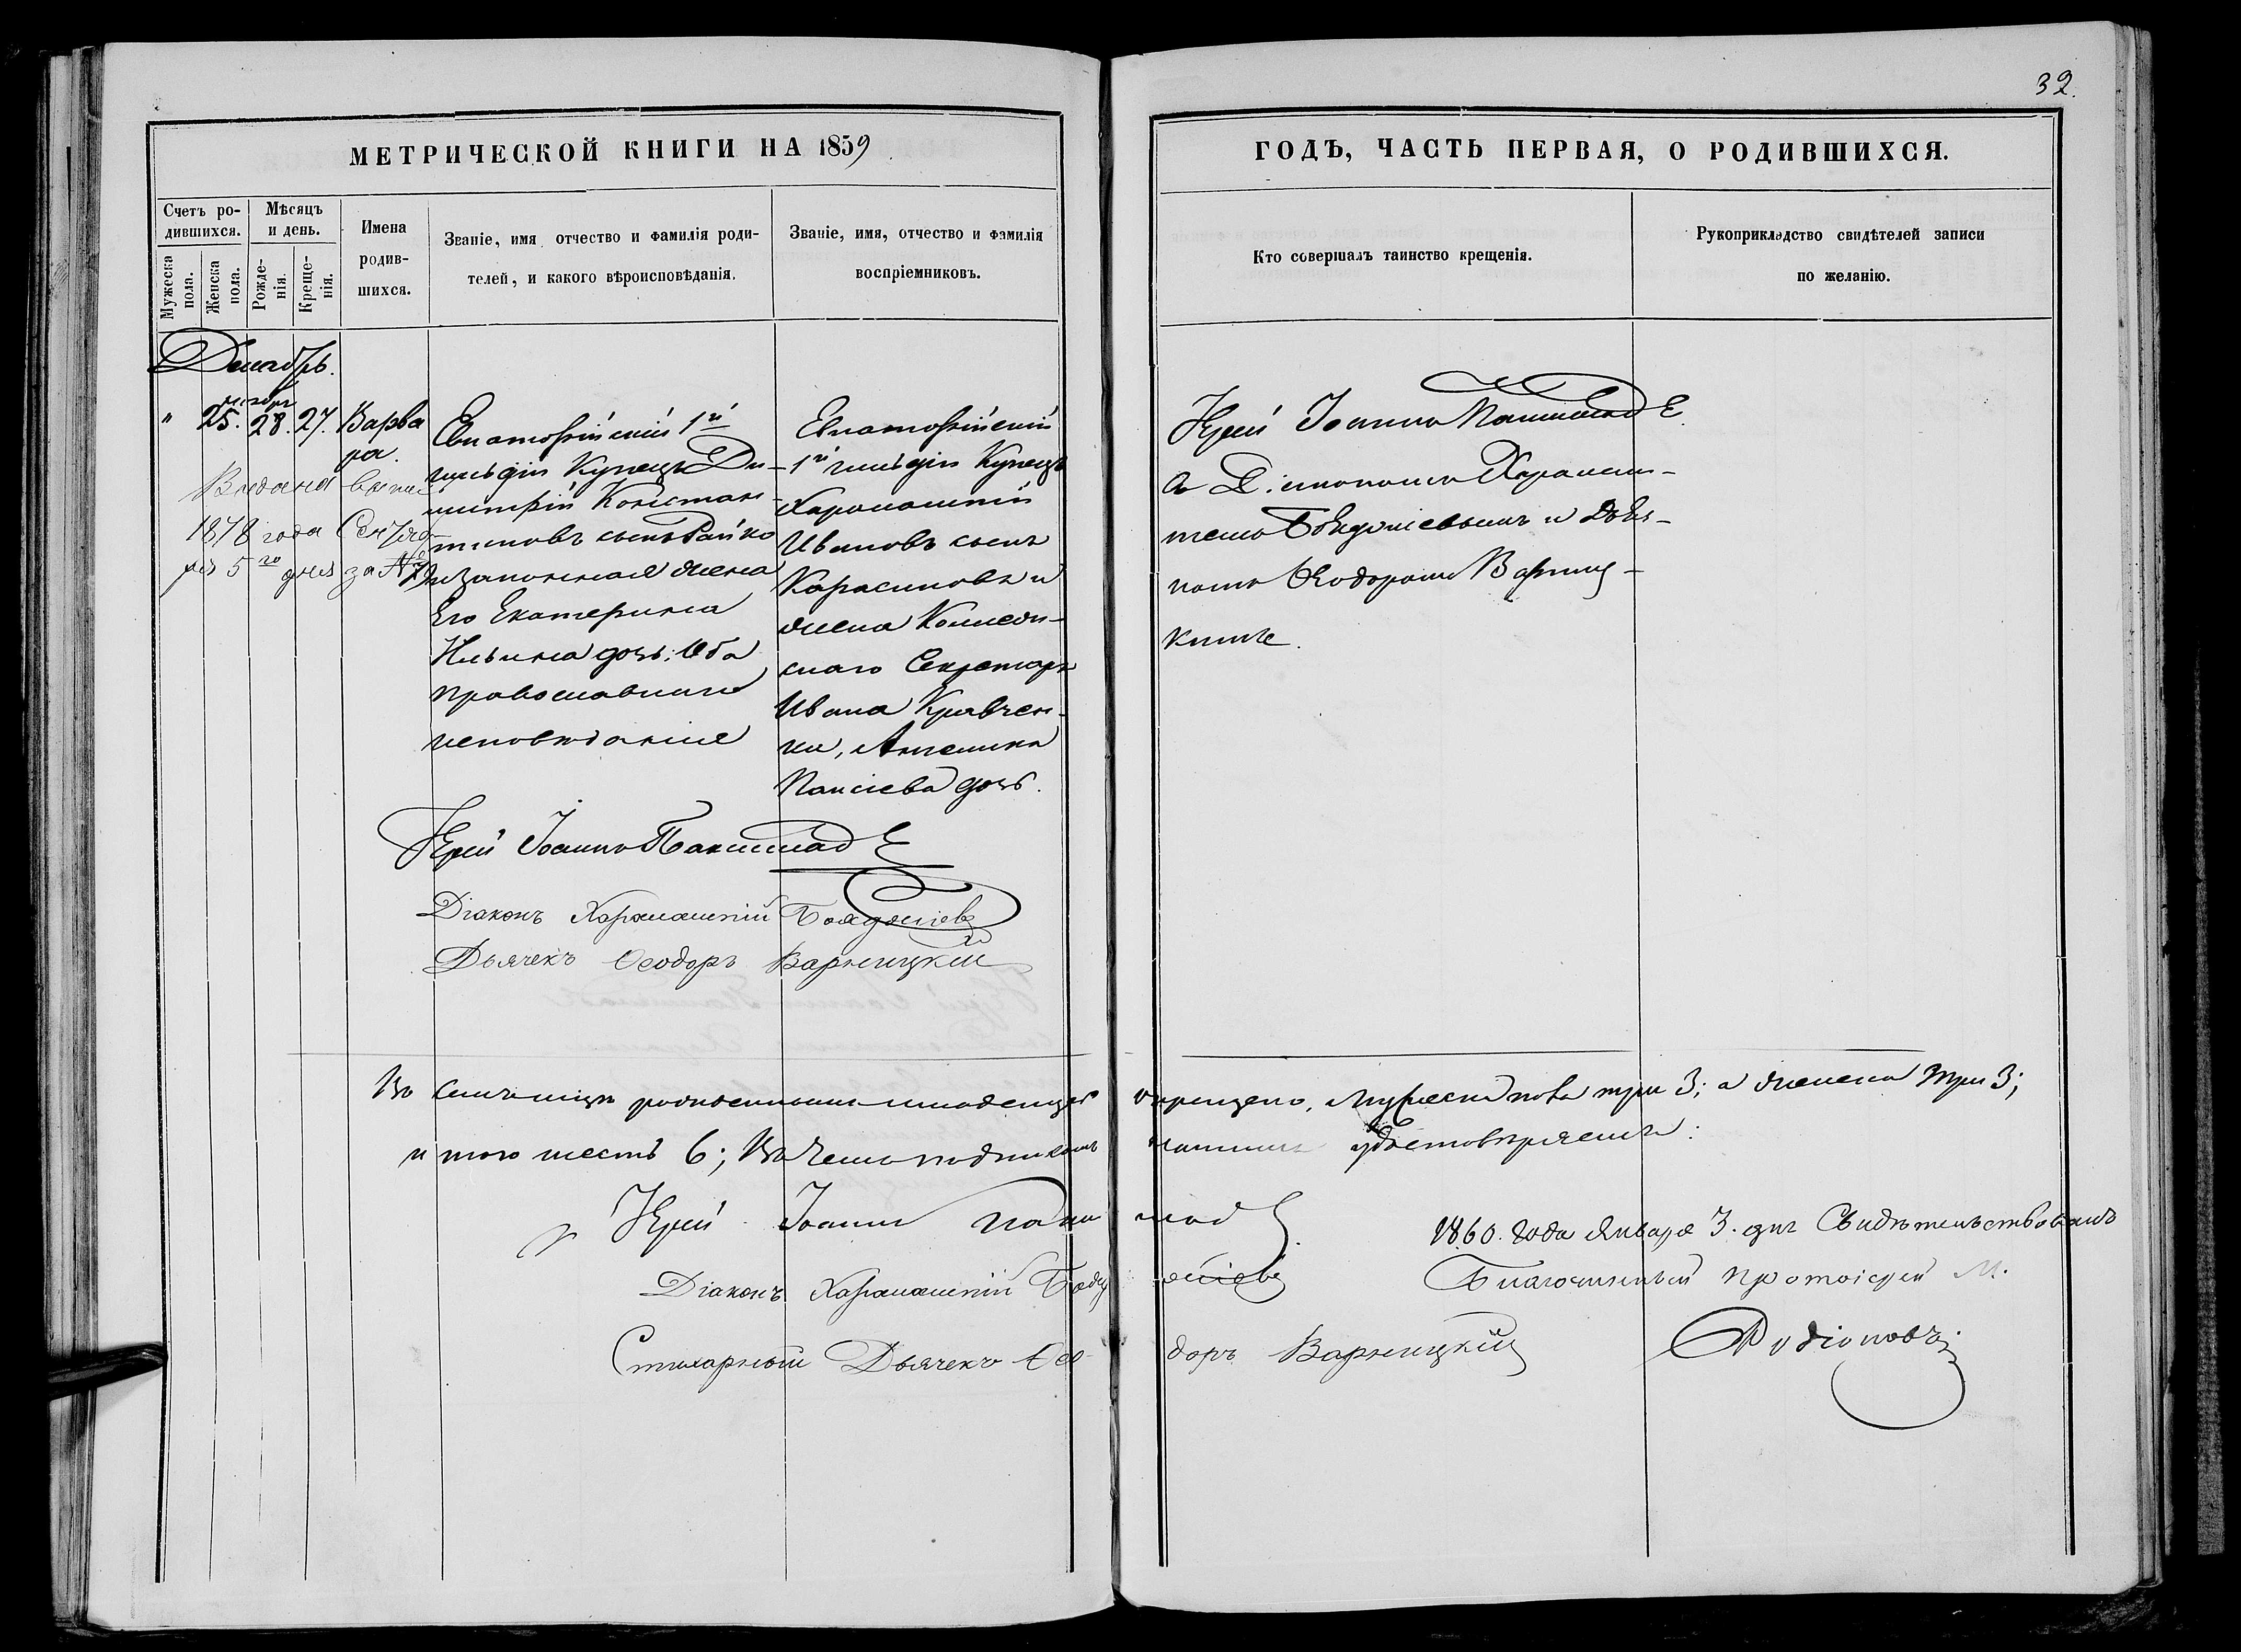 32.
МЕТРИЧЕСКОЙ КНИГИ НА 1859
ГОДЪ, ЧАСТЬ ПЕРВАЯ, О РОДИВШИХСЯ.
Счетъ ро-
дившихся.
Мужеска
пола.
Женска
пола.
Мѣсяцъ
и день.
Рожде-
нія.
Креще-
нія.
Имена
родив-
шихся.
Званіе, имя, отчество и фамилія роди-
телей, и какого вѣроисповѣданія.
Званіе, имя, отчество и фамилія
воспріемниковъ.
Кто совершалъ таинство крещенія.
Рукоприкладство свидѣтелей записи
по желанію.
Декабрь.
" 25. 28. 27. Варва
ра.
Выдана выпись
1878 года Сентяб
ря 5го дня за №
Евпаторійскій 1й
гильдіи Купецъ Ди-
митрій Констан-
тиновъ сынъ Райко
и законная жена
Его Екатерина
Ильина дочь: Оба
православнаго
исповѣданія
Евпаторійскій
1й гильдіи Купецъ
Харлампій
Ивановъ сынъ
Карасиновъ и
жена Коллежс-
каго Секретаря
Ивана Кравчен-
ки, Ангелина
Паисіева дочь.
Іерей Іоаннъ
съ Діакономъ Харламп-
іемъ Бояджіевымъ и Дьяч-
комъ Ѳеодоромъ Варниц-
кимъ.
Іерей Іоаннъ
Діаконъ Харлампій Бояджіевъ
Дьячекъ Ѳеодоръ Варницкій
Въ семъ мѣсяцѣ рожденныхъ младенцевъ окрещено, мужеска пола три 3; а женска три 3;
и того шесть 6; Въ чемъ подписомъ нашимъ удостовѣряемъ:
Іерей Іоаннъ
Діаконъ Харлампій Бояджіевъ
Стихарный Дьячекъ Ѳеодоръ Варницкій
1860. года Января 3. дня Свидѣтельствовалъ
Благочинный протоіерей М.
Родіоновъ